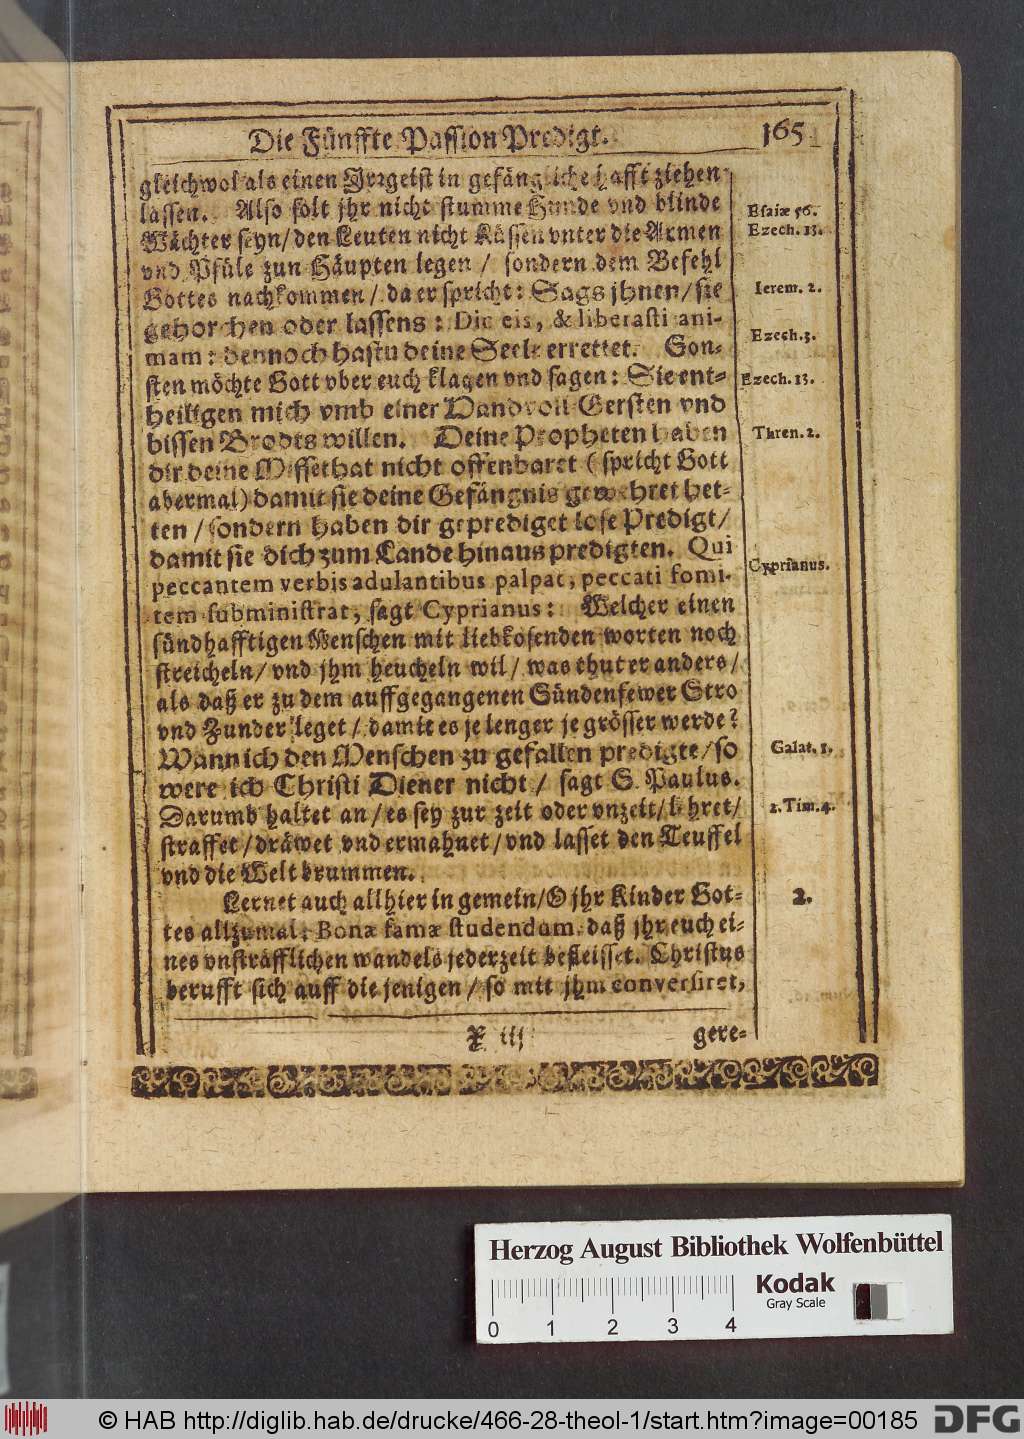 Die Fünffte Passion Predigt. 165
gleichwol als einen Irrgeist in gefängliche hafft ziehen
lassen. Also solt jhr nicht stumme Hunde vnd blinde
Wächter seyn/ den Leuten nicht Küssen vnter die Armen
vnd Pfüle zun Häupten legen / sondern dem Befehl
Gottes nachkommen / da er spricht: Sags jhnen/ sie
gehorchen oder lassens: Dic eis, & liberasti ani-
mam: dennoch hastu deine Seele errettet. Son-
sten möchte Gott vber euch klagen vnd sagen: Sie ent-
heiligen mich vmb einer Handvoll Gersten vnd
bissen Brodts willen. Deine Propheten haben
dir deine Missethat nicht offenbaret ( spricht Gott
abermal) damit sie deine Gefängnis gewehret het-
ten / sondern haben dir geprediget lose Predigt/
damit sie dich zum Lande hinaus predigten. Qui
peccantem verbis adulantibus palpat, peccati fomi-
tem subministrat, sagt Cyprianus: Welcher einen
sündhafftigen Menschen mit liebkosenden worten noch
streicheln/ vnd jhm heucheln wil/ was thut er anders/
als daß er zu dem auffgegangenen Sündenfewer Stro
vnd Zunder leget / damit es je lenger je grösser werde?
Wann ich den Menschen zu gefallen predigte/ so
were ich Christi Diener nicht / sagt S. Paulus.
Darumb haltet an / es sey zur zeit oder vnzeit/ lehret/
straffet / dräwet vnd ermahnet / vnd lasset den Teuffel
vnd die Welt brummen.
Lernet auch allhier in gemein/ O jhr Kinder Got-
tes allzumal: Bonæ famæ studendum, daß jhr euch ei-
nes vnsträfflichen wandels jederzeit befleisset. Christus
berufft sich auff die jenigen / so mit jhm conversiret,
X iij gere-
Esaiæ 56.
Ezech. 13.
Ierem. 2.
Ezech. 3.
Ezech. 13.
Thren. 2.
Cyprianus.
Galat. 1.
2. Tim. 4.
2.
Herzog August Bibliothek Wolfenbüttel
Kodak
Gray Scale
0 1 2 3 4
© HAB http://diglib.hab.de/drucke/466-28-theol-1/start.htm?image=00185 DFG